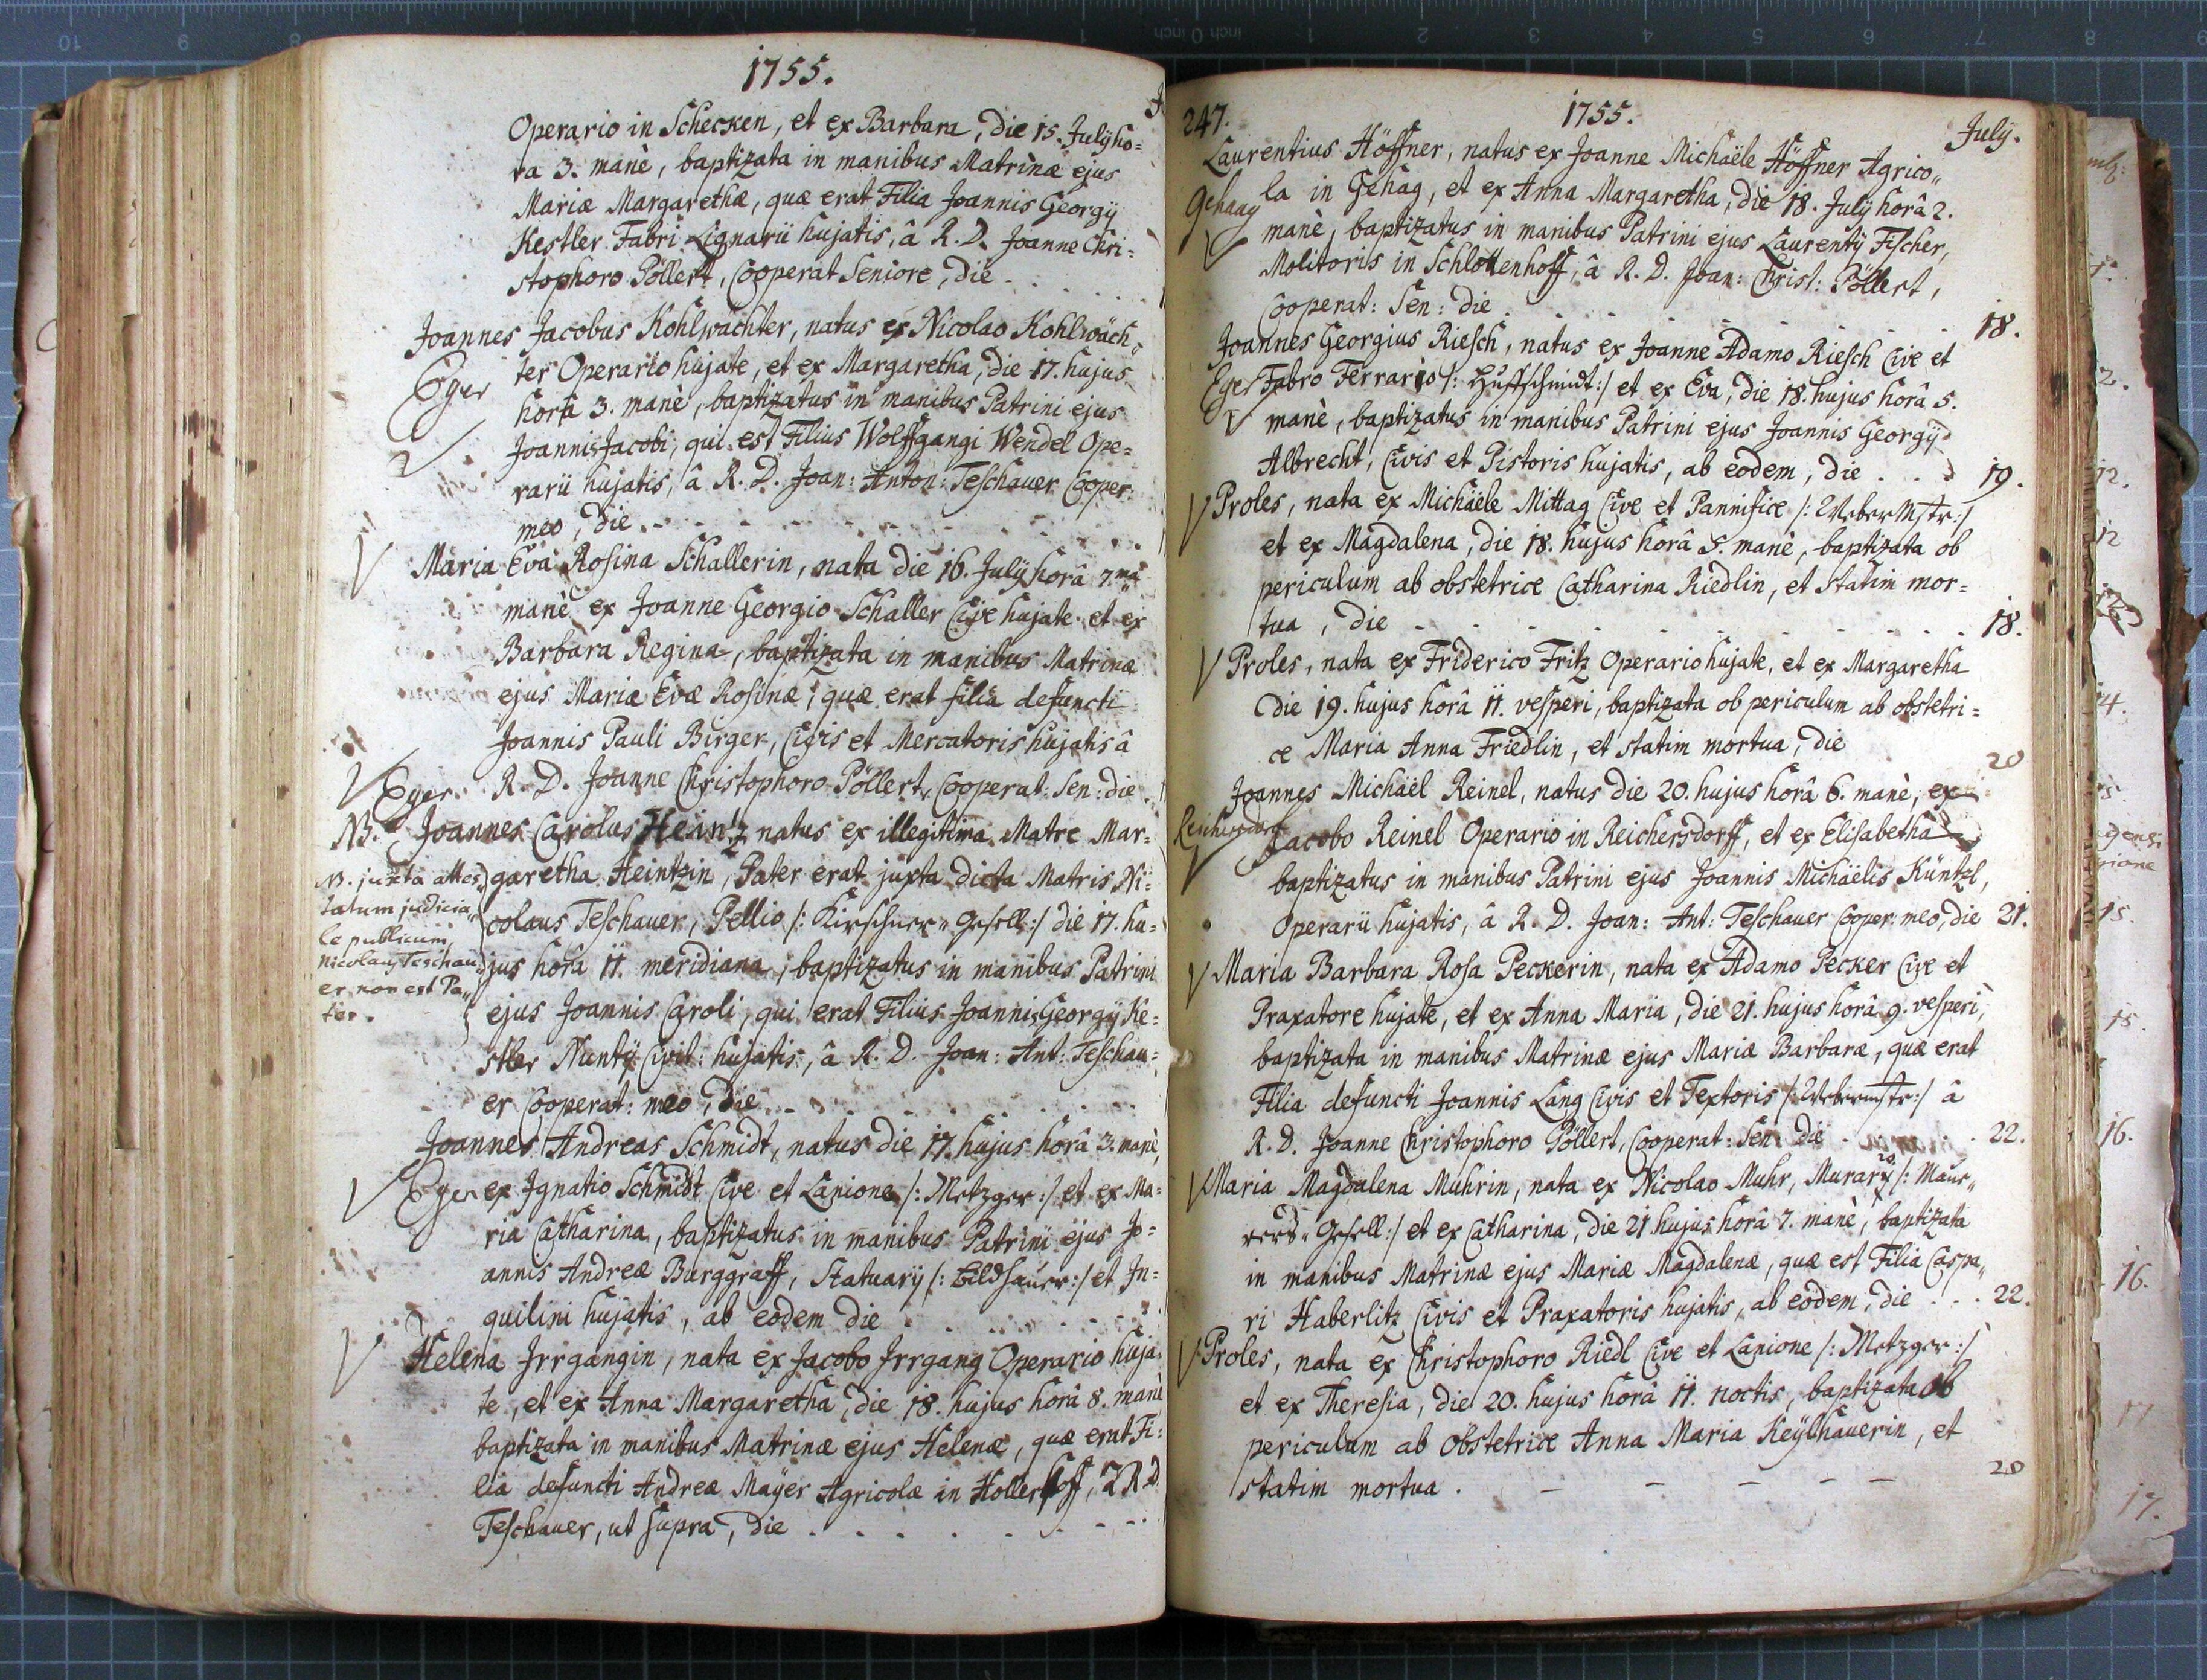 1755.
Operario in Schecken, et ex Barbara, die 15. Julÿ ho=
ra 3. manè, baptizata in manibus Matrinæ ejus
Mariæ Margarethæ, quæ erat Filia Joannis Georgÿ
Kestler Fabri Lignarii hujatis, â R. D. Joanne Chri=
stophoro Pöllert, Cooperat Seniore, die
Joannes Jacobus Kohlwächter, natus ex Nicolao Kohlwäch=
Eger
ter Operario hujate, et ex Margaretha, die 17. hujus
horâ 3. manè, baptizatus in manibus Patrini ejus
Joannis Jacobi, qui est Filius Wolffgangi Wendel Ope=
rarii hujatis, â R. D. Joan: Anton: Teschauer Cooper:
meo, die
Maria Eva Rosina Schallerin, nata die 16. Julÿ horâ 7.mâ
manè ex Joanne Georgio Schaller Cive hujate et ex
Barbara Regina, baptizata in manibus Matrinæ
ejus Mariæ Evæ Rosinæ, quæ erat filia defuncti
Joannis Pauli Birger, Civis et Mercatoris hujatis â
Eger. R. D. Joanne Christophoro Pöllert, Cooperat: Sen: die
NB. Joannes Carolus Heintz natus ex illegitima Matre Mar=
garetha Heintzin, Pater erat juxta dicta Matris Ni=
colaus Teschauer, Pellio /: Kirschner=Gesell :/ die 17. hu=
jus horâ 11. meridiana, baptizatus in manibus Patrini
ejus Joannis Caroli, qui erat Filius Joannis Georgÿ Ke=
stler Nuntÿ Civit: hujatis, â R. D. Joan: Ant: Teschau=
er Cooperat: meo, die
NB. juxta attes=
tatum judicia=
le publicum
Nicolaus Teschau=
er non est Pa=
ter.
Joannes Andreas Schmidt, natus die 17. hujus horâ 3. manè,
Eger ex Ignatio Schmidt Cive et Lanione /: Metzger :/ et ex Ma=
ria Catharina, baptizatus in manibus Patrini ejus Jo=
annis Andreæ Burggraff, Statuarÿ /: Bildhauer :/ et In=
quilini hujatis, ab eodem die
Helena Irrgangin, nata ex Jacobo Irrgang Operario huja=
te, et ex Anna Margaretha, die 18. hujus horâ 8. manè
baptizata in manibus Matrinæ ejus Helenæ, quæ erat Fi=
lia defuncti Andreæ Maÿer Agricolæ in Hollerhoff, â R. D.
Teschauer, ut supra, die
247. 1755. Julÿ.
Laurentius Höffner, natus ex Joanne Michaële Höffner Agrico=
Gehaag
la in Gehag, et ex Anna Margaretha, die 18. Julÿ horâ 2.
manè, baptizatus in manibus Patrini ejus Laurentÿ Fischer,
Molitoris in Schlottenhoff, â R. D. Joan: Christ: Pöllert,
Cooperat: Sen: die 18.
Joannes Georgius Riesch, natus ex Joanne Adamo Riesch Cive et
Eger Fabro Ferrario /: Huffschmidt :/ et ex Eva, die 18. hujus horâ 5.
manè, baptizatus in manibus Patrini ejus Joannis Georgÿ
Albrecht, Civis et Pistoris hujatis, ab eodem, die 19.
Proles, nata ex Michäele Mittag Cive et Pannifice /: WeberMstr :/
et ex Magdalena, die 18. hujus horâ 5. manè, baptizata ob
periculum ab obstetrice Catharina Riedlin, et statim mor=
tua, die 18.
Proles, nata ex Friderico Fritz Operario hujate, et ex Margaretha
die 19. hujus horâ 11. vesperi, baptizata ob periculum ab obstetri=
ce Maria Anna Friedlin, et statim mortua, die 20
Joannes Michäel Reinel, natus die 20. hujus horâ 6. manè, ex
Reichersdorf
Jacobo Reinel Operario in Reichersdorff, et ex Elisabetha
baptizatus in manibus Patrini ejus Joannis Michäelis Küntzl,
Operarii hujatis, â R. D. Joan: Ant: Teschauer Cooper: meo, die 21.
Maria Barbara Rosa Peckerin, nata ex Adamo Pecker Cive et
Praxatore hujate, et ex Anna Maria, die 21. hujus horâ 9. vesperi,
baptizata in manibus Matrinæ ejus Mariæ Barbaræ, quæ erat
Filia defuncti Joannis Lang Civis et Textoris /: Webermstr :/ â
R. D. Joanne Christophoro Pöllert, Cooperat: Sen: die 22.
Maria Magdalena Muhrin, nata ex Nicolao Muhr, Murario /: Maue=
rers=Gesell :/ et ex Catharina, die 21 hujus horâ 7. manè, baptizata
in manibus Matrinæ ejus Mariæ Magdalenæ, quæ est Filia Caspa=
ri Haberlitz Civis et Praxatoris hujatis, ab eodem, die 22.
Proles, nata ex Christophoro Riedl Cive et Lanione /: Metzger :/
et ex Theresia, die 20. hujus horâ 11. noctis, baptizata ob
periculum ab obstetrice Anna Maria Keÿlhauerin, et
statim mortua. 20